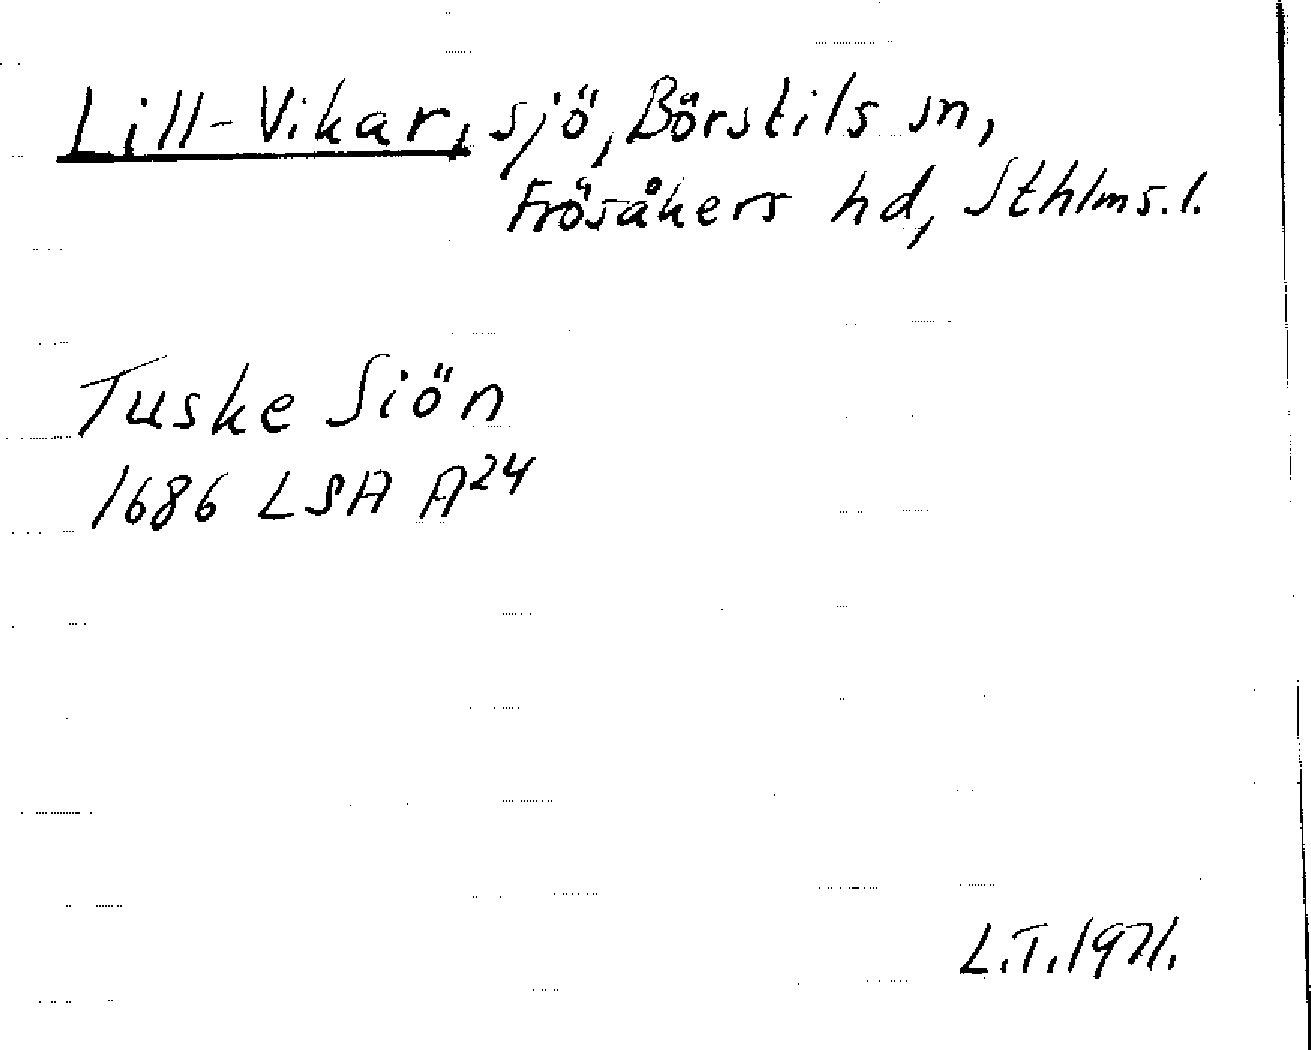 Lill-Vikar, sjö, Börstils sn,
Frösåkers hd, Sthlms.l.
Tuske Siön
1686 LSA A24
L.T.1971.